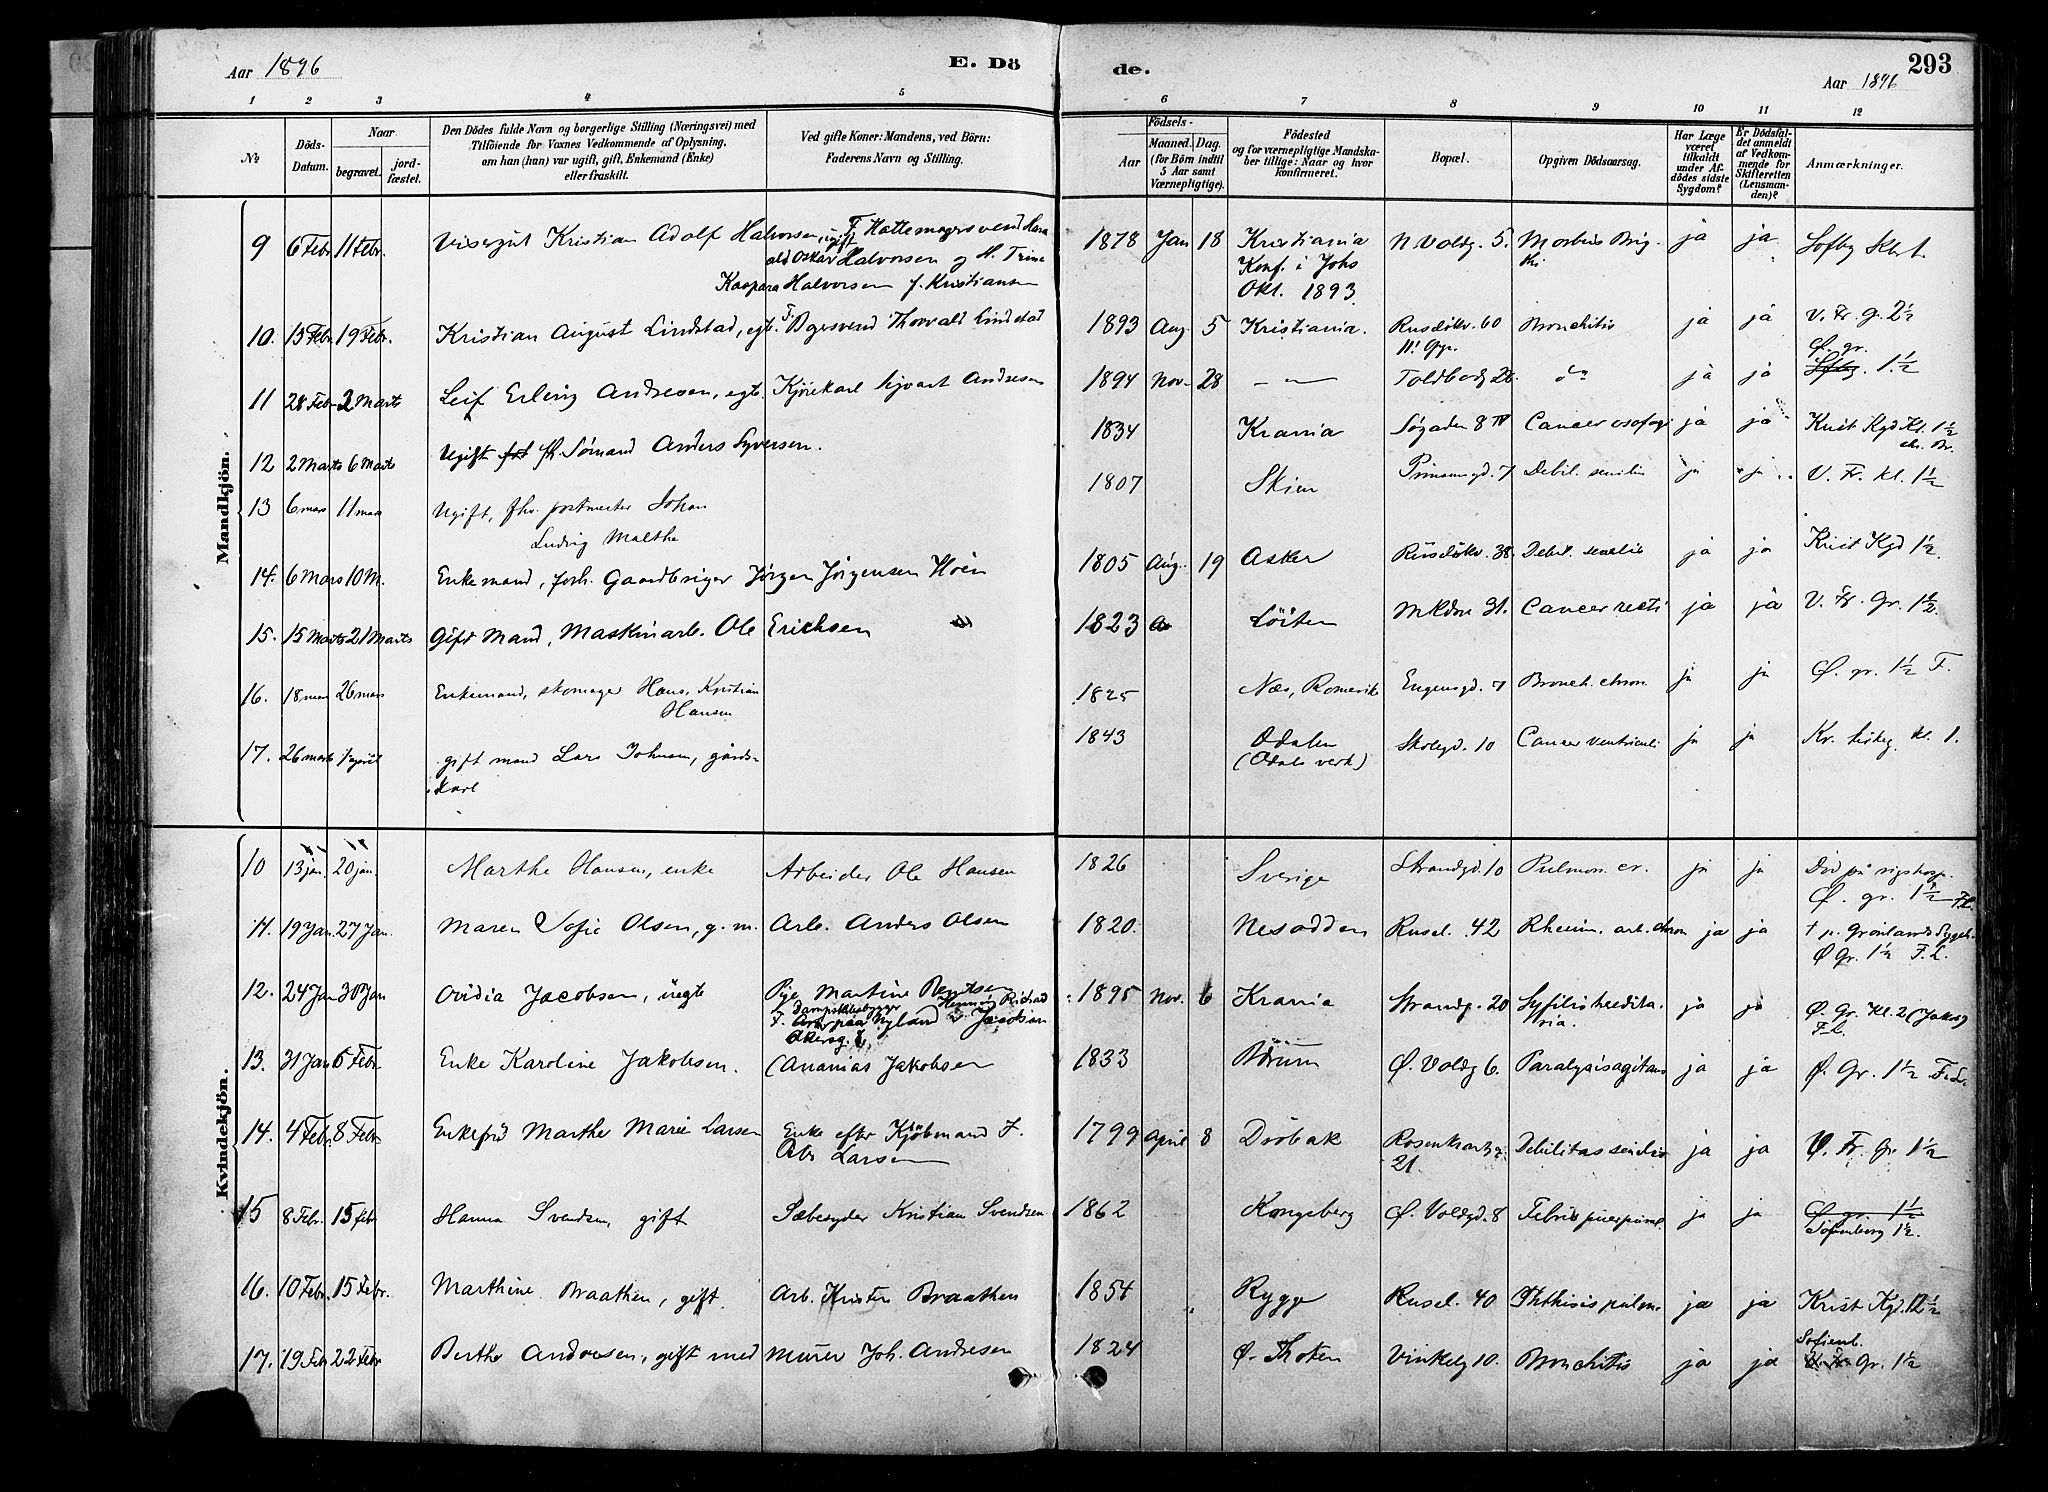 Aar 1896
E. Dö
de.
Aar 1896
293
1 2 3 4 5 6 7 8 9 10 11 12
№
Döds-Datum.
Naar
begravet.
jord-fæstet.
Den Dödes fulde Navn og borgerlige Stilling (Næringsvei) med
Tilföiende for Voxnes Vedkommende af Oplysning,
om han (hun) var ugift, gift, Enkemand (Enke)
eller fraskilt.
Ved gifte Koner: Mandens, ved Börn:
Faderens Navn og Stilling.
Födsels-
Aar
Maaned. Dag.
(for Börn indtil
5 Aar samt
Værnepligtige).
Födested
og for værnepligtige Mandska-
ber tillige: Naar og hvor
konfirmeret.
Bopæl.
Opgiven Dödsaarsag.
Har Læge
været
tilkaldt
under Af-
dödes sidste
Sygdom?
Er Dödsfal-
det anmeldt
af Vedkom-
mende for
Skifteretten
(Lensman-
den)?
Anmærkninger.
Mandkjön.
9 6 Febr 11 Febr. Visergut Kristian Adolf Halvorsen, ugift F. Hattemagersvend Har
ald Oskar Halvorsen og H. Trine
Kaspara Halvorsen f. Kristiansen
1878 Jan 18 Kristiania N Voldg. 5. Morbus Brig- ja ja
Konf. i Johs
Okt. 1893
10. 13 Febr. 19 Febr. Kristian August Lindstad, egt. F. Bgersvend Thorvald Lindstad 1893 Aug 5 Kristiania. Rusdkv. 60 Bronchitis ja ja V. Fr. g. 2½
11 28 Febr 2 Marts Leif Erling Andresen, egt. Kjörekarl Andresen 1894 Nov. 28 — " — Toldbodg 28. do ja ja Ø. gr. 1½
12 2 Marts 6 Marts Ugift fh. Sømand Anders Syversen. 1834 Krania Søgaden 8 IV Cancer osofagi ja ja Krist Kgd Kl. 1½
13 6 mars 11 mars Ugift, fhv. postmester Johan
Ludvig Malthe
1807 Skien Prinsensgd. 7 Debil. senilis ja ja V. Fr. Kl. 1½
14. 6 Mars 10 M. Enkemand, forh. Gaardbruger Jörgen Jörgensen Höen 1805 Aug. 19 Asker Rusdkv. 38. Debil. senilis ja ja Krist Kgd 1½
15. 15 Marts 21 Marts Gift Mand, Maskinarb. Ole Erichsen 1823 Löiten 31. Cancer recti ja ja V. Fr. Gr. 1½
16. 18 mars 26 mars Enkemand, skomager Hans Kristian
Hansen
1825 Næs, Romerik Engensgd. 7 Bronch. chron. ja ja Ø. gr. 1½ F.
17. 26 marts 1 april gift mand Lars Johnsen, gårds-
karl
1843 Odalen Skolegd. 10 Cancer ventriculi ja ja Kr. kirkeg. kl. 1.
(Odals verk)
Kvindekjön.
10 13 jan. 20 jan. Marthe Hansen, enke Arbeider Ole Hansen 1826 Sverige Strandgd. 10 Pulmon. cr. ja ja Död på rigshosp.
Ø. gr. 1½ F.L.
11. 19 Jan. 27 Jan. Maren Sofie Olsen, g.m. Arb. Anders Olsen 1820. Nesodden Rusel. 42 Rheum. art. chron ja ja † p. Grönlands Sygeh.
Ø Gr. 1½ F.L.
12. 24 Jan 30 Jan Ovidia Jacobsen, uegte Pige Martine Berntsen
F. Arb. paa Nyland Jacobsen
1895 Nov. 6 Krania Strandg. 20 Syfilis heredita- ja ja Ø. Gr. Kl. 2 (Jakob)
ria.
F.L.
13. 31 Jan 5 Febr Enke Karoline Jakobsen. (Ananias Jakobsen 1833 Bærum Ø. Voldg 6. Paralysis agitans ja ja Ø. Gr. 1½ F.L.
14. 4 Febr. 8 Febr Enkefru Marthe Marie Larsen Enke efter Kjöbmand J.
Abr Larsen
1799 April 8 Dröbak Rosenkrantzg. Debilitas senilis ja ja V. Fr. Gr. 1½
21.
15 8 Febr. 15 febr Hanna Svendsen, gift Sæbesyder Kristian Svendsen 1862 Kongsberg Ø. Voldgd. 8 Febris puerperal. ja ja Ø gr. 1½
Sofienberg 1½.
16. 10 Febr. 15 Febr. Marthine Braathen, gift. Arb. Kristen Braathen 1854 Rygge Rusel. 40 Phthisis pulm. ja ja Krist Kgd. 12½
17. 19 Febr 22 Febr Berthe Andresen, gift med Murer Joh. Andresen 1824 Ø. Thoten Vinkelg 10. Bronchitis ja ja Sofienb.
Gr. 1½